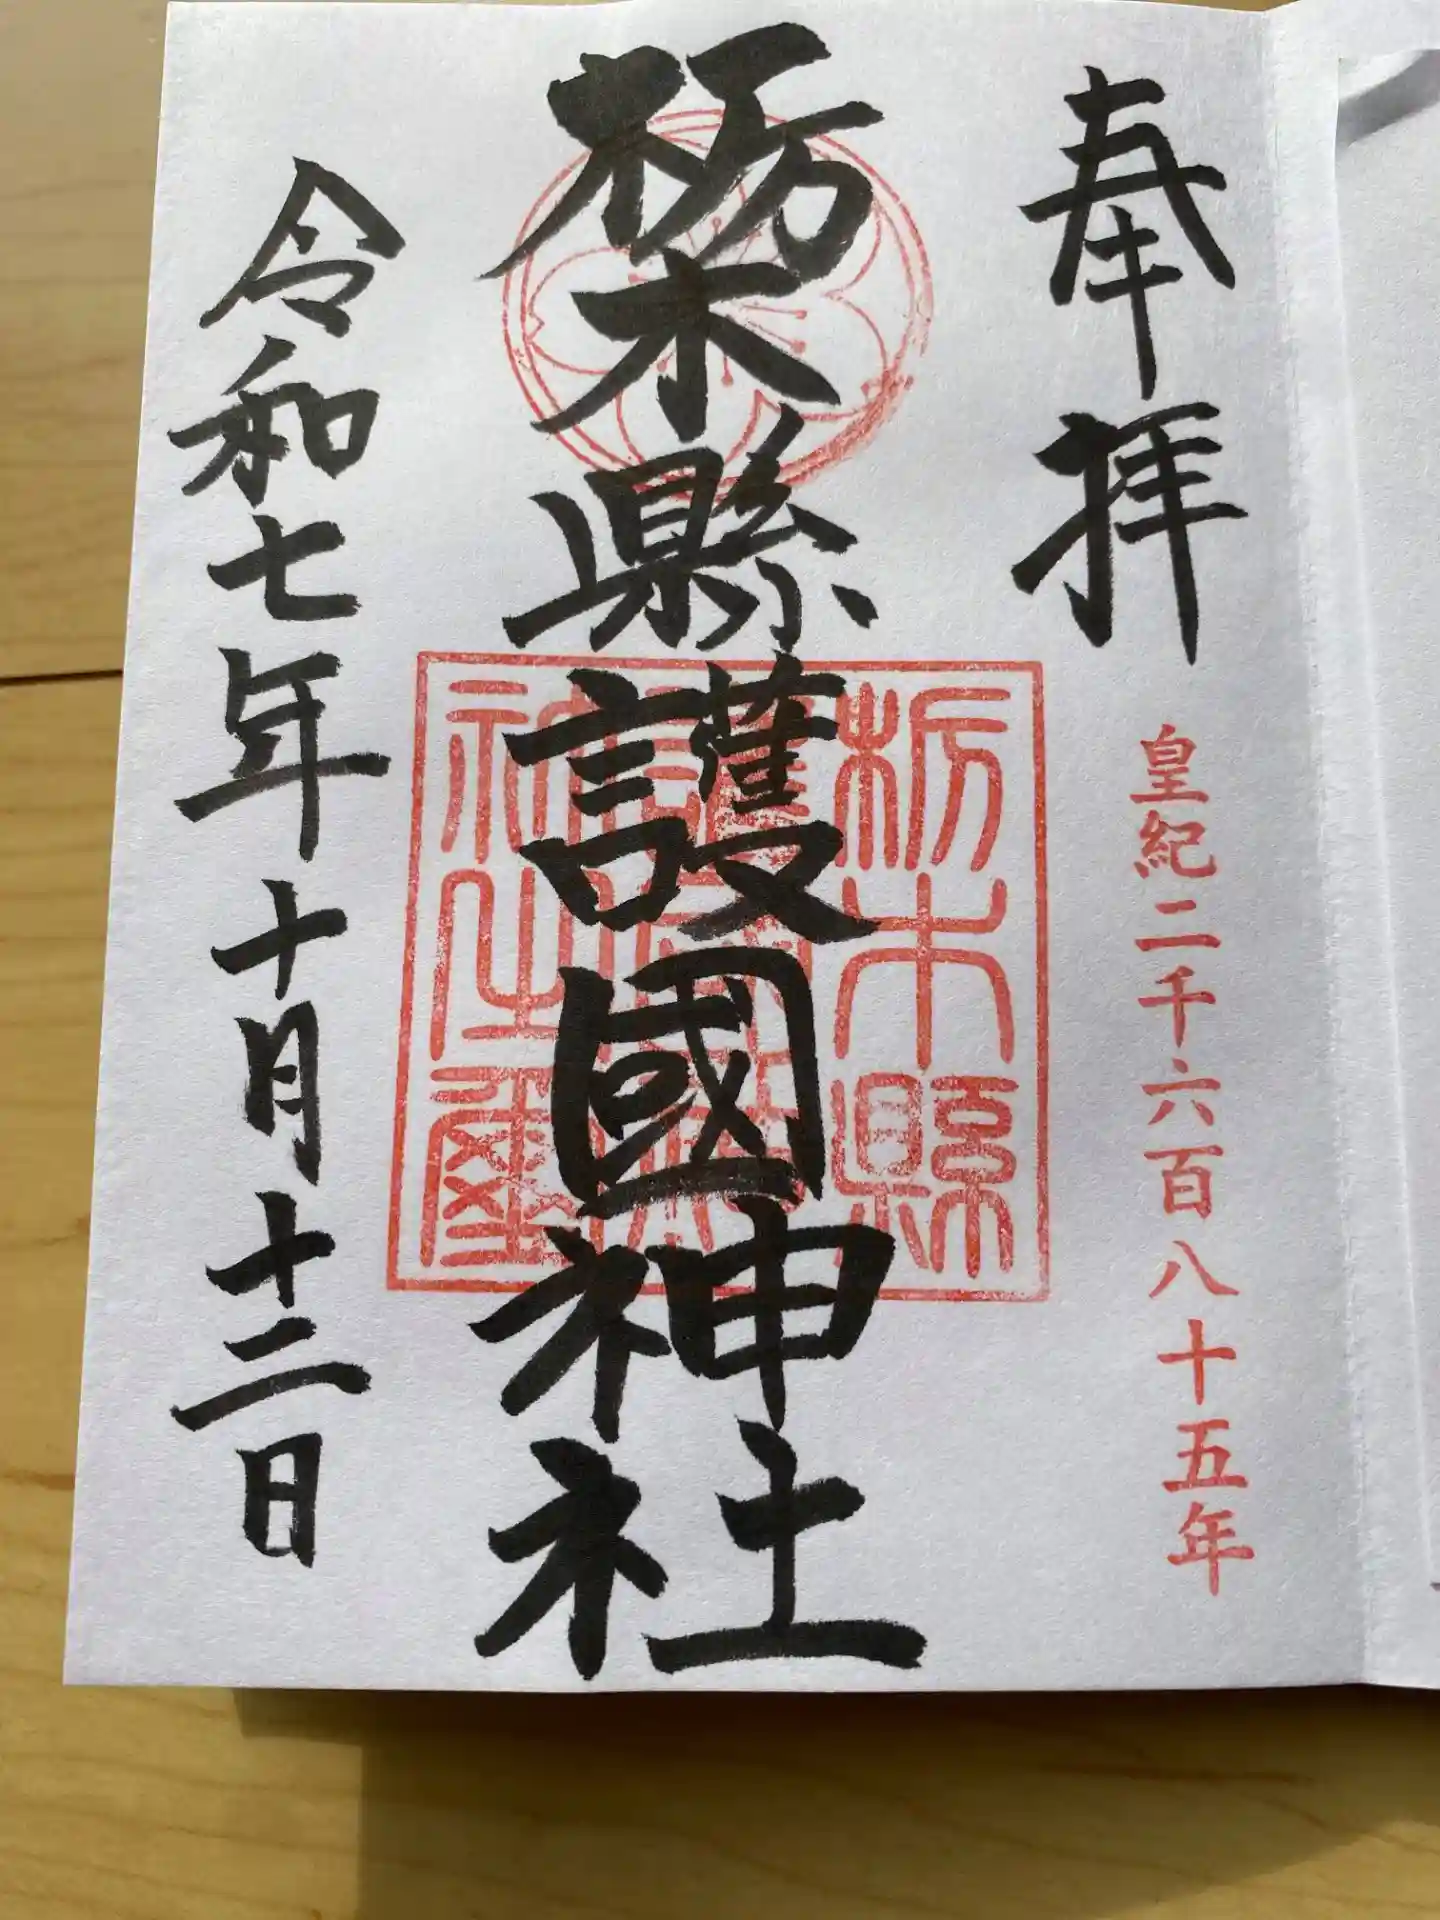 奉拝
皇紀二千六百八十五年
栃木縣護國神社
栃木縣
護國神
社之璽
令和七年十月十二日